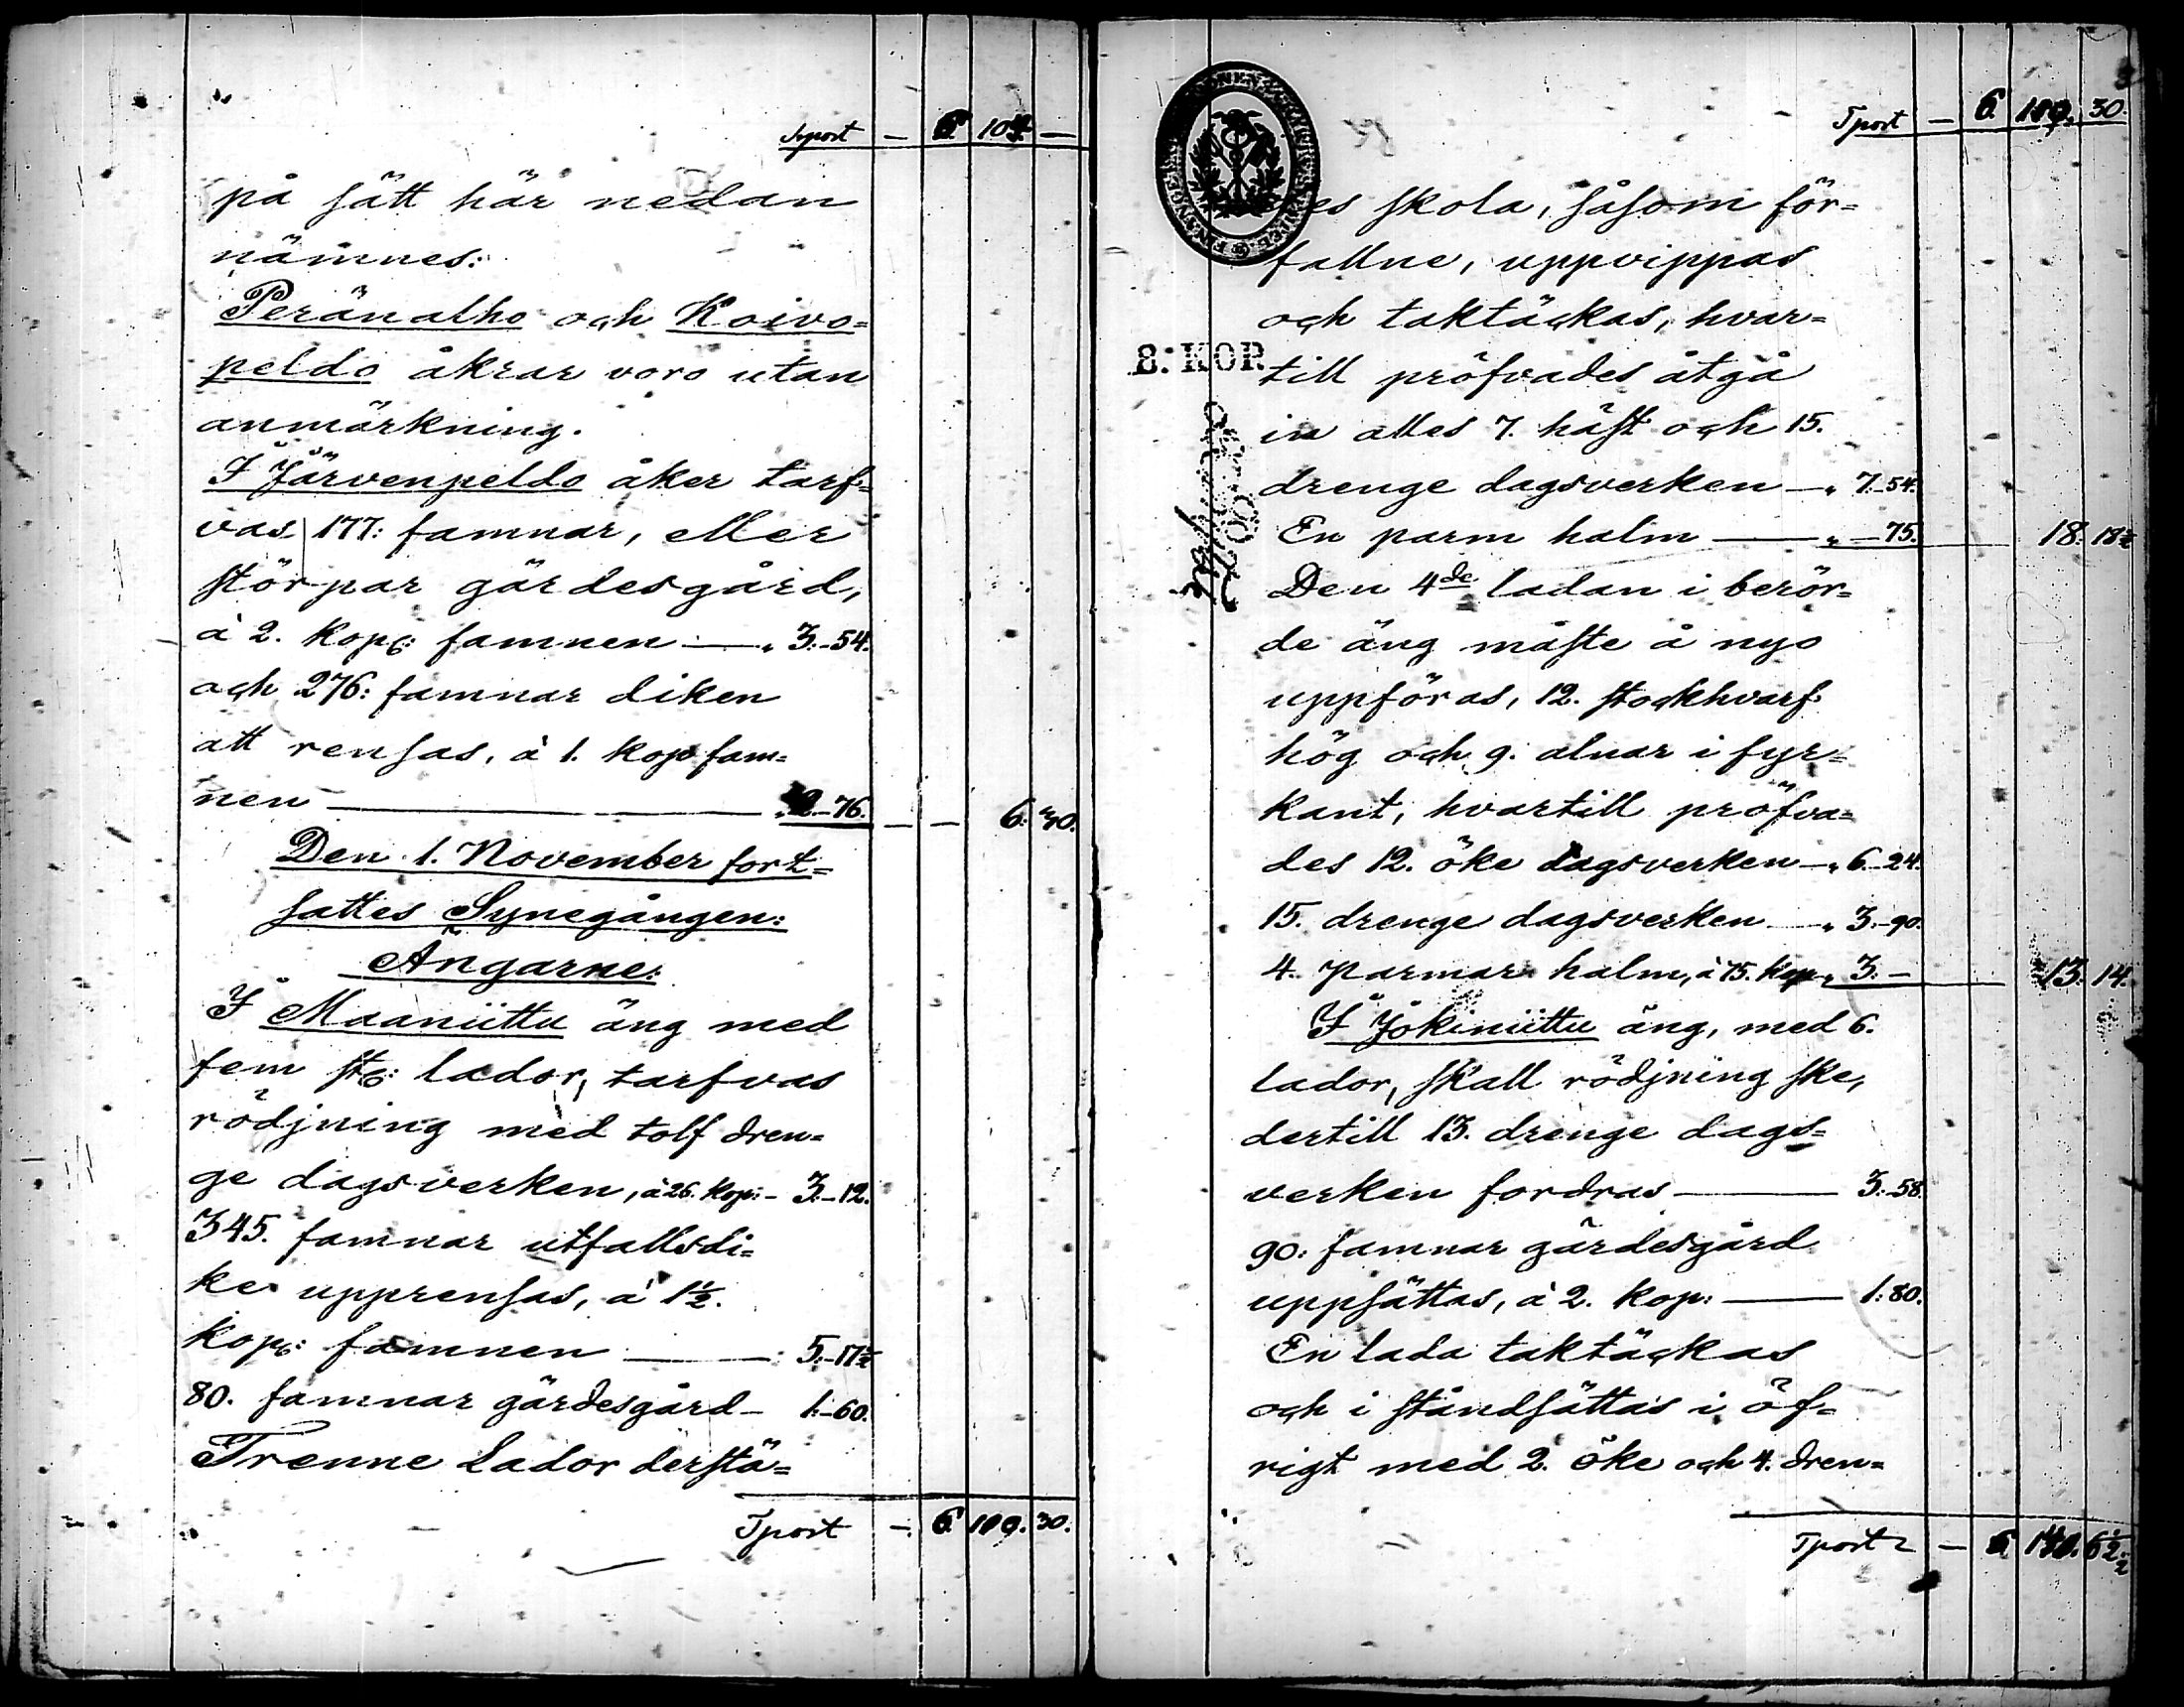 Tspost — 6 104 —
på sätt här nedan
nämnes:
Peränalho och Koivo=
peldo åkrar voro utan
anmärkning.
I Järvenpeldo åker tarf=
vas 177: famnar, eller
störpar gärdesgård,
à 2. kop: famnen — „ 3.-54.
och 276: famnar diken
att rensas, à 1. kop fam=
nen — „ 2-76. — — 6: 30.
Den 1. November fort=
sattes Synegången:
Ängarne:
I Maaniittu äng med
fem st: lador, tarfvas
rödjning med tolf dren=
ge dagsverken, à 26. kop: - 3.-12.
345. famnar utfallsdi=
ke upprensas, à 1½.
kop: famnen — 5.-17½
80. famnar gärdesgård - 1.-60.
Trenne Lador derstä=
Tspost — 6 109. 30.
Tspost — 6. 109. 30.
des skola, såsom för=
fallne, uppvippas
och taktäckas, hvar=
8: KOP.
till pröfvades åtgå
in alles 7. häst och 15.
drenge dagsverken — „ 7.-54.
En parm halm — „ -75. 18. 18½
Den 4de ladan i berör=
de äng måste å nyo
uppföras, 12. stockhvarf
hög och 9. alnar i fyr=
kant, hvartill pröfva=
des 12. öke dagsverken — „ 6.-24.
15. drenge dagsverken — „ 3.-90.
4. parmar halm, à 75. kop „ 3.- 13. 14.
I Jokiniittu äng, med 6.
lador, skall rödjning ske,
dertill 13. drenge dags=
verken fordras — 3.-58.
90: famnar gärdesgård
uppsättas, à 2. kop: — 1:80.
En lada taktäckas
och i ståndsättas i öf=
rigt med 2. öke och 4. dren=
Tspost — 6 140. 62½